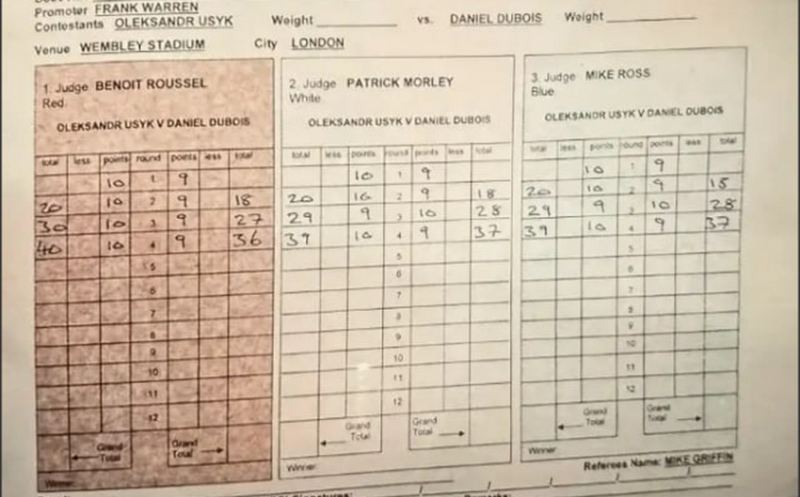 Promoter FRANK WARREN
Contestants OLEKSANDR USYK Weight vs. DANIEL DUBOIS Weight
Venue WEMBLEY STADIUM City LONDON
1. Judge BENOIT ROUSSEL
Red.
OLEKSANDR USYK V DANIEL DUBOIS
total less points round points less total
10 1 9
20 10 2 9 18
30 10 3 9 27
40 10 4 9 36
5
6
7
8
9
10
11
12
Grand Total Grand Total
Winner:
2. Judge PATRICK MORLEY
White.
OLEKSANDR USYK V DANIEL DUBOIS
total less points round points less total
10 1 9
20 10 2 9 18
29 9 3 10 28
39 10 4 9 37
5
6
7
8
9
10
11
12
Grand Total Grand Total
Winner:
3. Judge MIKE ROSS
Blue.
OLEKSANDR USYK V DANIEL DUBOIS
total less points round points less total
10 1 9
20 10 2 9 18
29 9 3 10 28
39 10 4 9 37
5
6
7
8
9
10
11
12
Grand Total Grand Total
Winner:
Referees Name: MIKE GRIFFIN